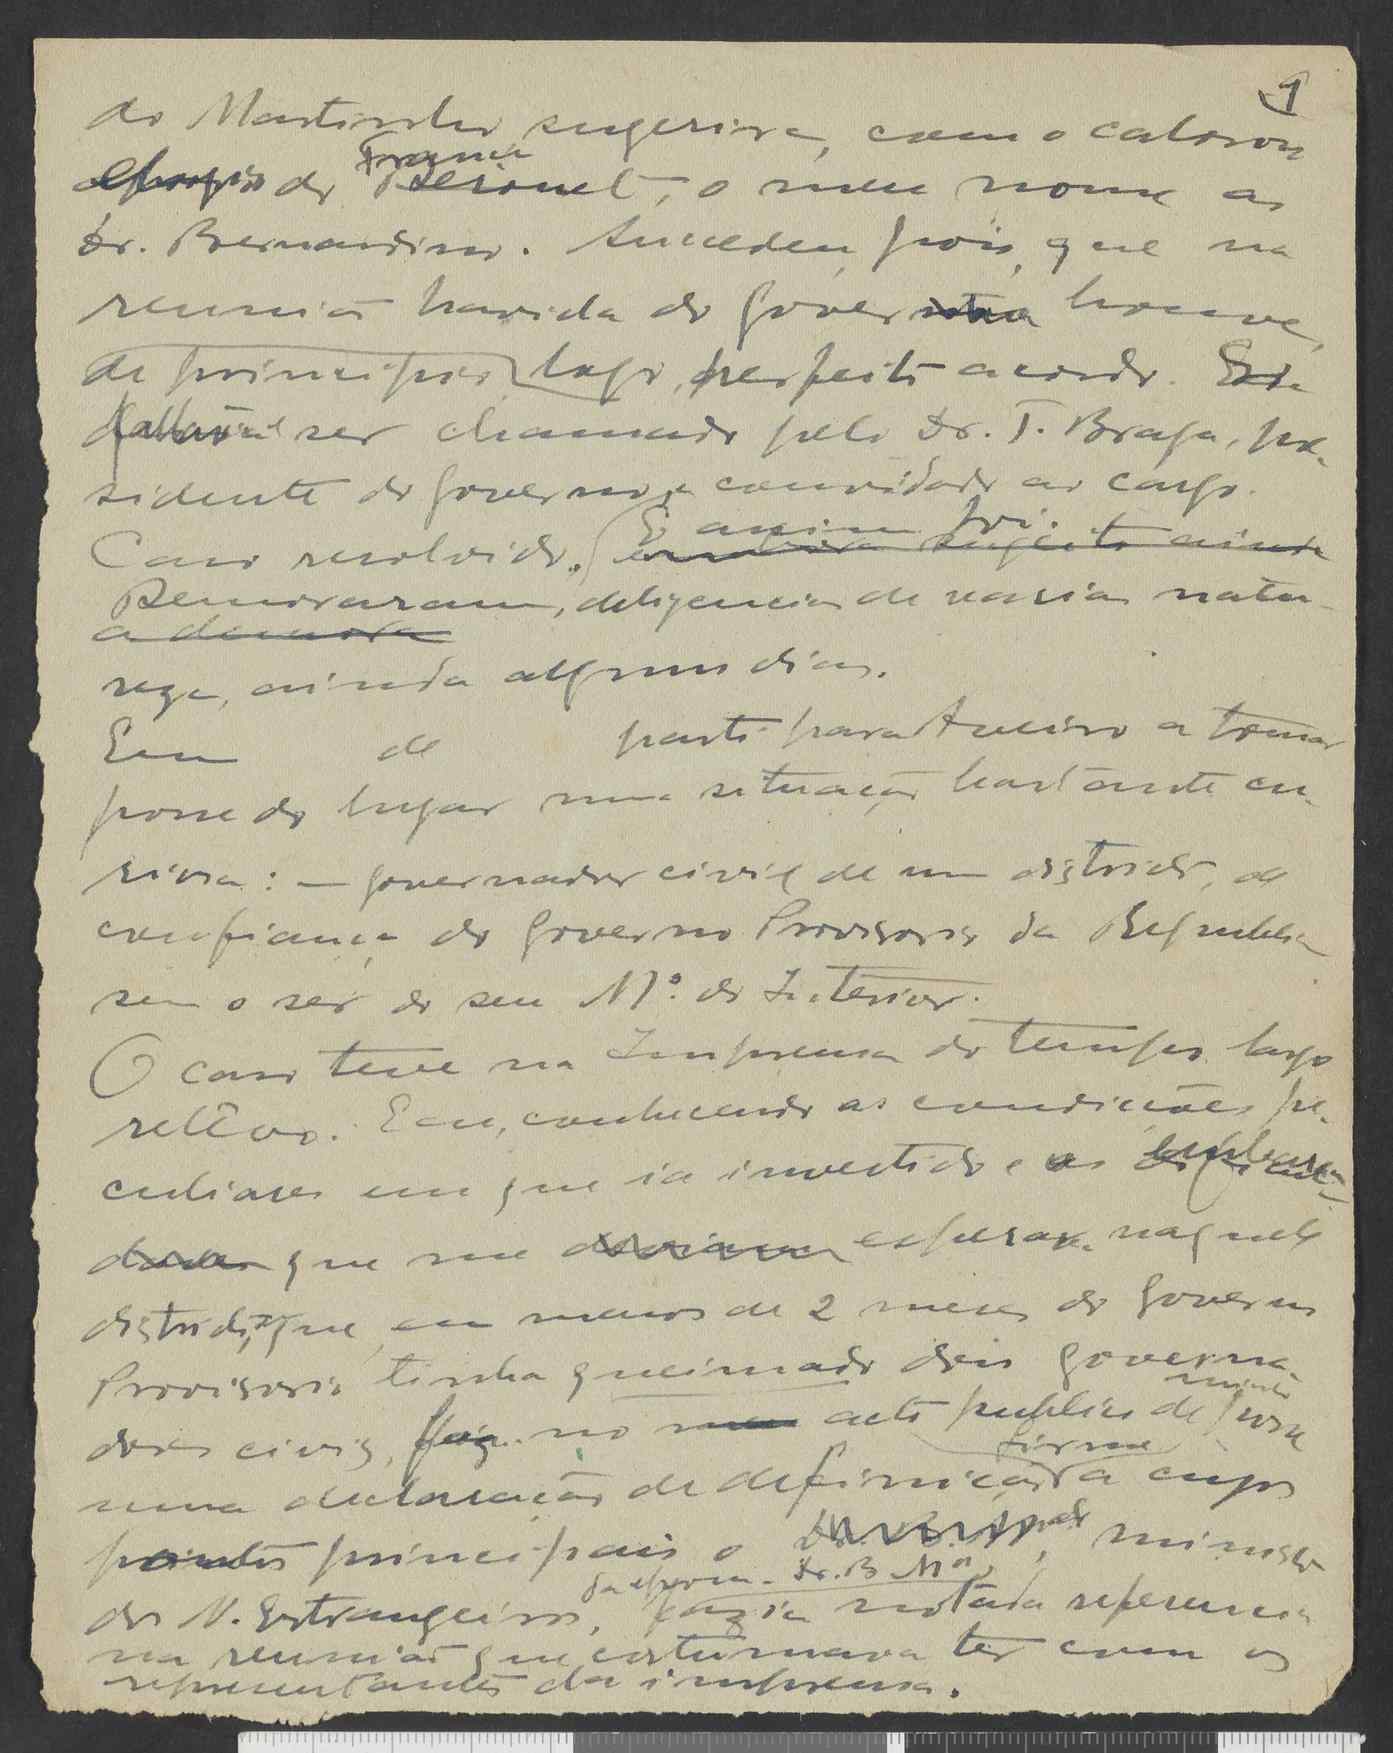 1
do Martinho sugerira, com o caloroso
apoio do França Derouet, o meu nome ao
Dr. Bernardino. Sucedeu, pois, que na
reunião havida do governo houve,
de principio, logo, perfeito acordo.
faltava ser chamado pelo Dr. T. Braga, pre-
sidente do governo, e convidado ao cargo.
E assim foi.
Caso resolvido.
Demoraram, deligencias de varia natu-
a demora
reza, ainda alguns dias.
Em de parti para Aveiro a tomar
posse do lugar numa situação bastante cu-
riosa: — governador civil de um distrito, de
confiança do Governo Provisorio da Republica
sem o ser do seu M.º do Interior.
O caso teve na Imprensa do tempo largo
relêvo. E eu, conhecendo as condições pe-
culiares em que ia investido e os
que me esperavam naquele
distrito, que, em menos de 2 meses do Governo
Provisorio tinha queimado dois governa-
dores civis, fiz no acto publico de minha posse
firme
uma declaração de definição a cujos
pontos principais o ministro
da epoca Dr. B. M.
dos N. Estrangeiros, fazia notada referencia
na reunião que costumava ter com os
representantes da imprensa.